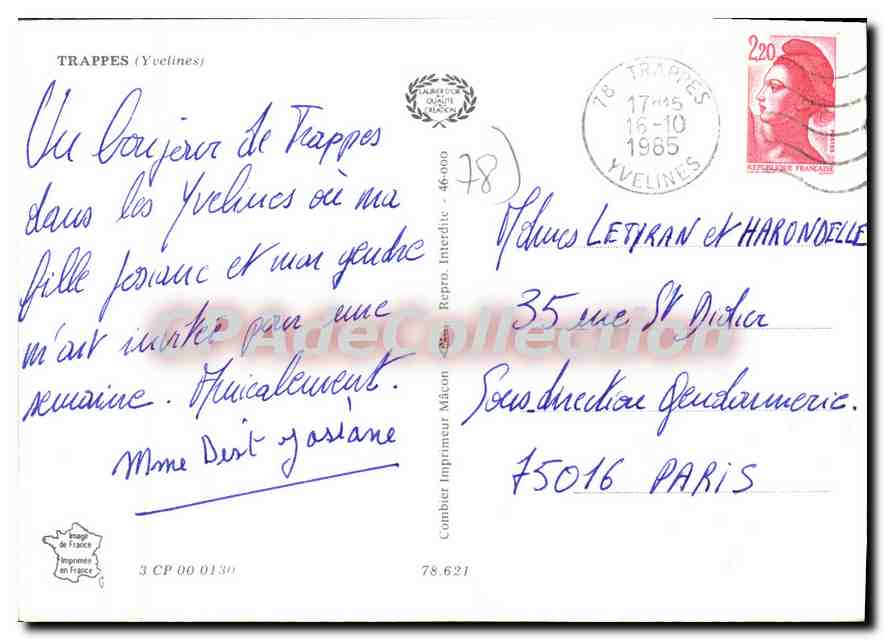 TRAPPES (Yvelines)
Un bonjour de Trappes
dans les Yvelines où ma
fille Josiane et mon gendre
m'ont invitée pour une
semaine. Amicalement.
Mme Dest Josiane
LAURIER D'OR
DE
QUALITÉ
CRÉATION
78)
78 TRAPPES
17H15
16-10
1985
YVELINES
2,20
REPUBLIQUE FRANÇAISE
Mdmes LETYRAN et HARONDELLE
35 rue St Didier
Sous-direction Gendarmerie.
75016 PARIS
Combier Imprimeur Mâcon
Repro. Interdite - 46-000
CPAdeCollection
Image
de France
Imprimée
en France
3 CP 00 0130
78.621